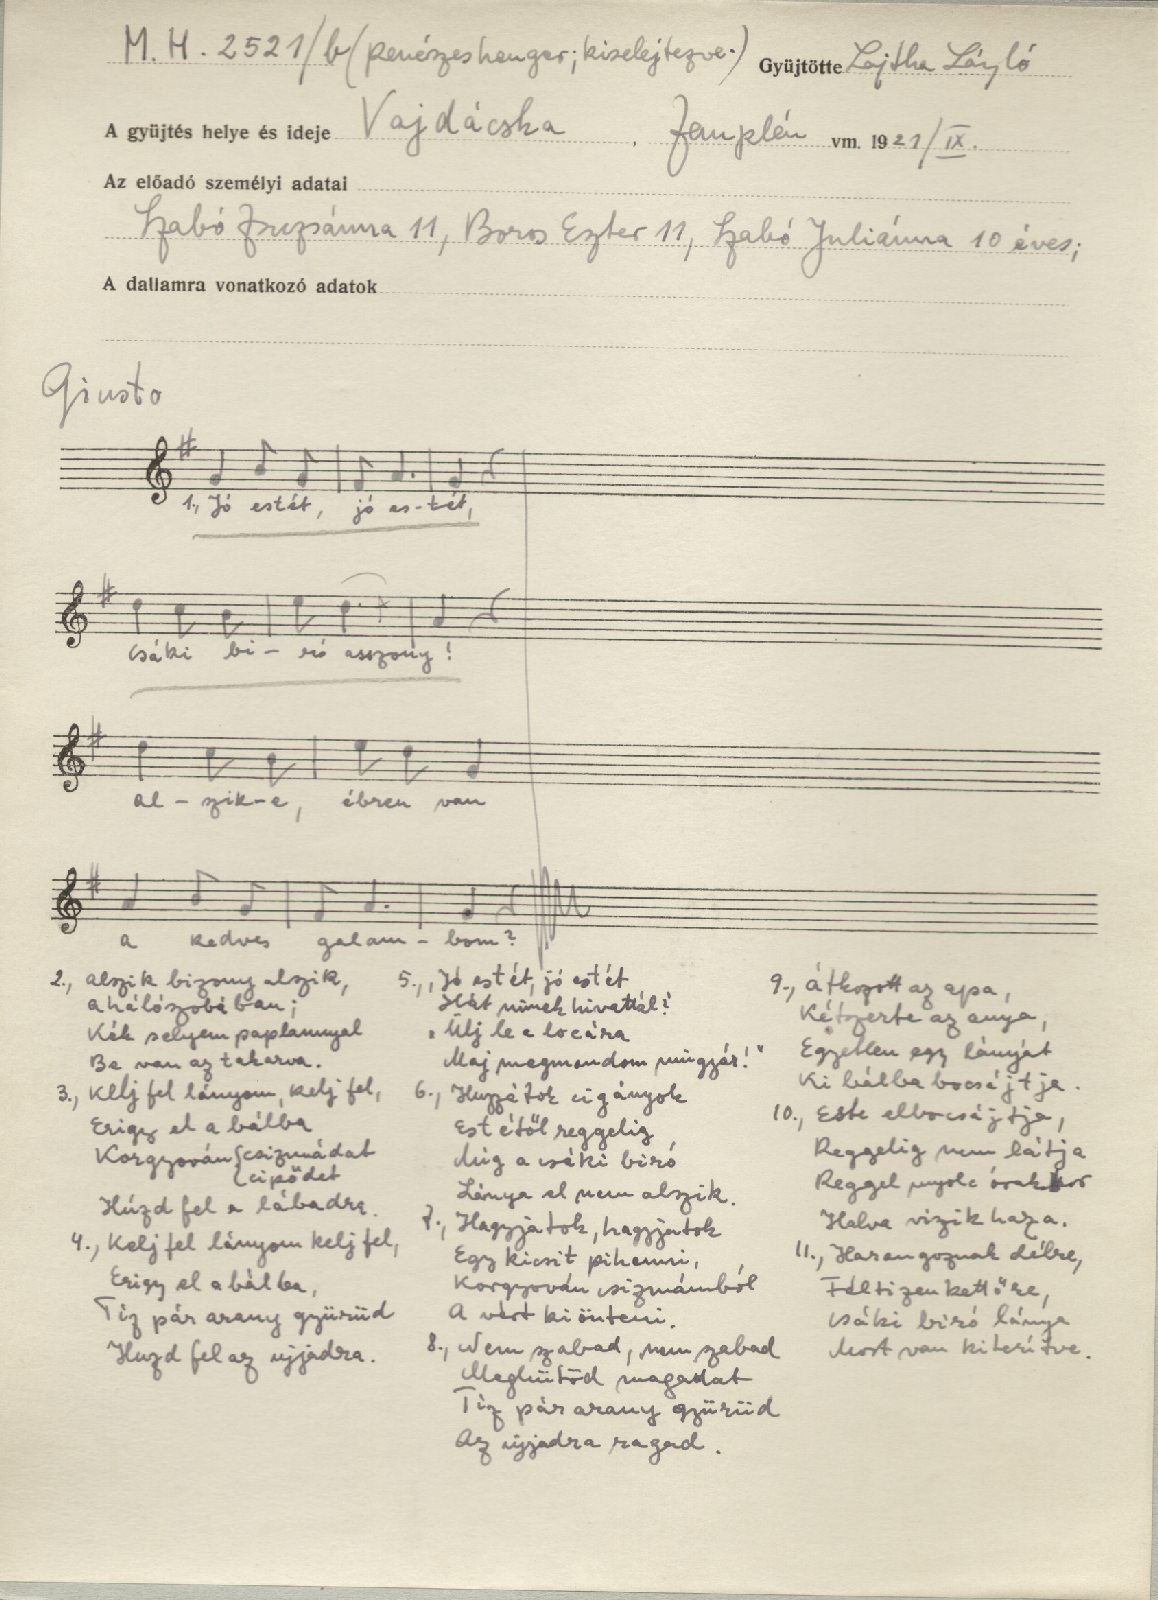 M. H. 2521/b (penészes henger; kiselejtezve.) Gyüjtötte Lajtha László
A gyüjtés helye és ideje Vajdácska, Zemplén vm. 1921/IX.
Az előadó személyi adatai
Szabó Zsuzsánna 11, Boros Eszter 11, Szabó Juliánna 10 éves;
A dallamra vonatkozó adatok
Giusto
1., Jó estét, jó es-tét,
csáki bi - ró asszony!
al - szik-e, ébren van
a kedves galam - bom?
2., alszik bizony alszik,
a hálószobában;
Kék selyem paplannyal
Be van az takarva.
3., Kelj fel lányom, kelj fel,
Erigy el a bálba
Korgyován {csizmádat
{cipődet
Húzd fel a lábadra.
4., Kelj fel lányom kelj fel,
Erigy el a bálba,
Tíz pár arany gyürüd
Huzd fel az ujjadra.
5., „Jó estét, jó estét
Hát minek hivattál?"
„Ülj le a locára
Maj megmondom mingyár!"
6., Huzzátok cigányok
Estétől reggelig
Mig a csáki biró
Lánya el nem alszik.
7., Hagyjatok, hagyjatok
Egy kicsit pihenni,
Korgyován csizmámból
A vért kiönteni.
8., Nem szabad, nem szabad
Meghütöd magadat
Tíz pár arany gyürüd
Az ujjadra ragad.
9., Átkozott az apa,
Kétszerte az anya,
Egyetlen egy lányát
Ki bálba bocsájtja.
10., Este elbocsájtja,
Reggelig nem látja
Reggel nyolc órakkor
Halva vizik haza.
11., Harangoznak délre,
Féltizenkettőre,
csáki biró lánya
Most van kiterítve.